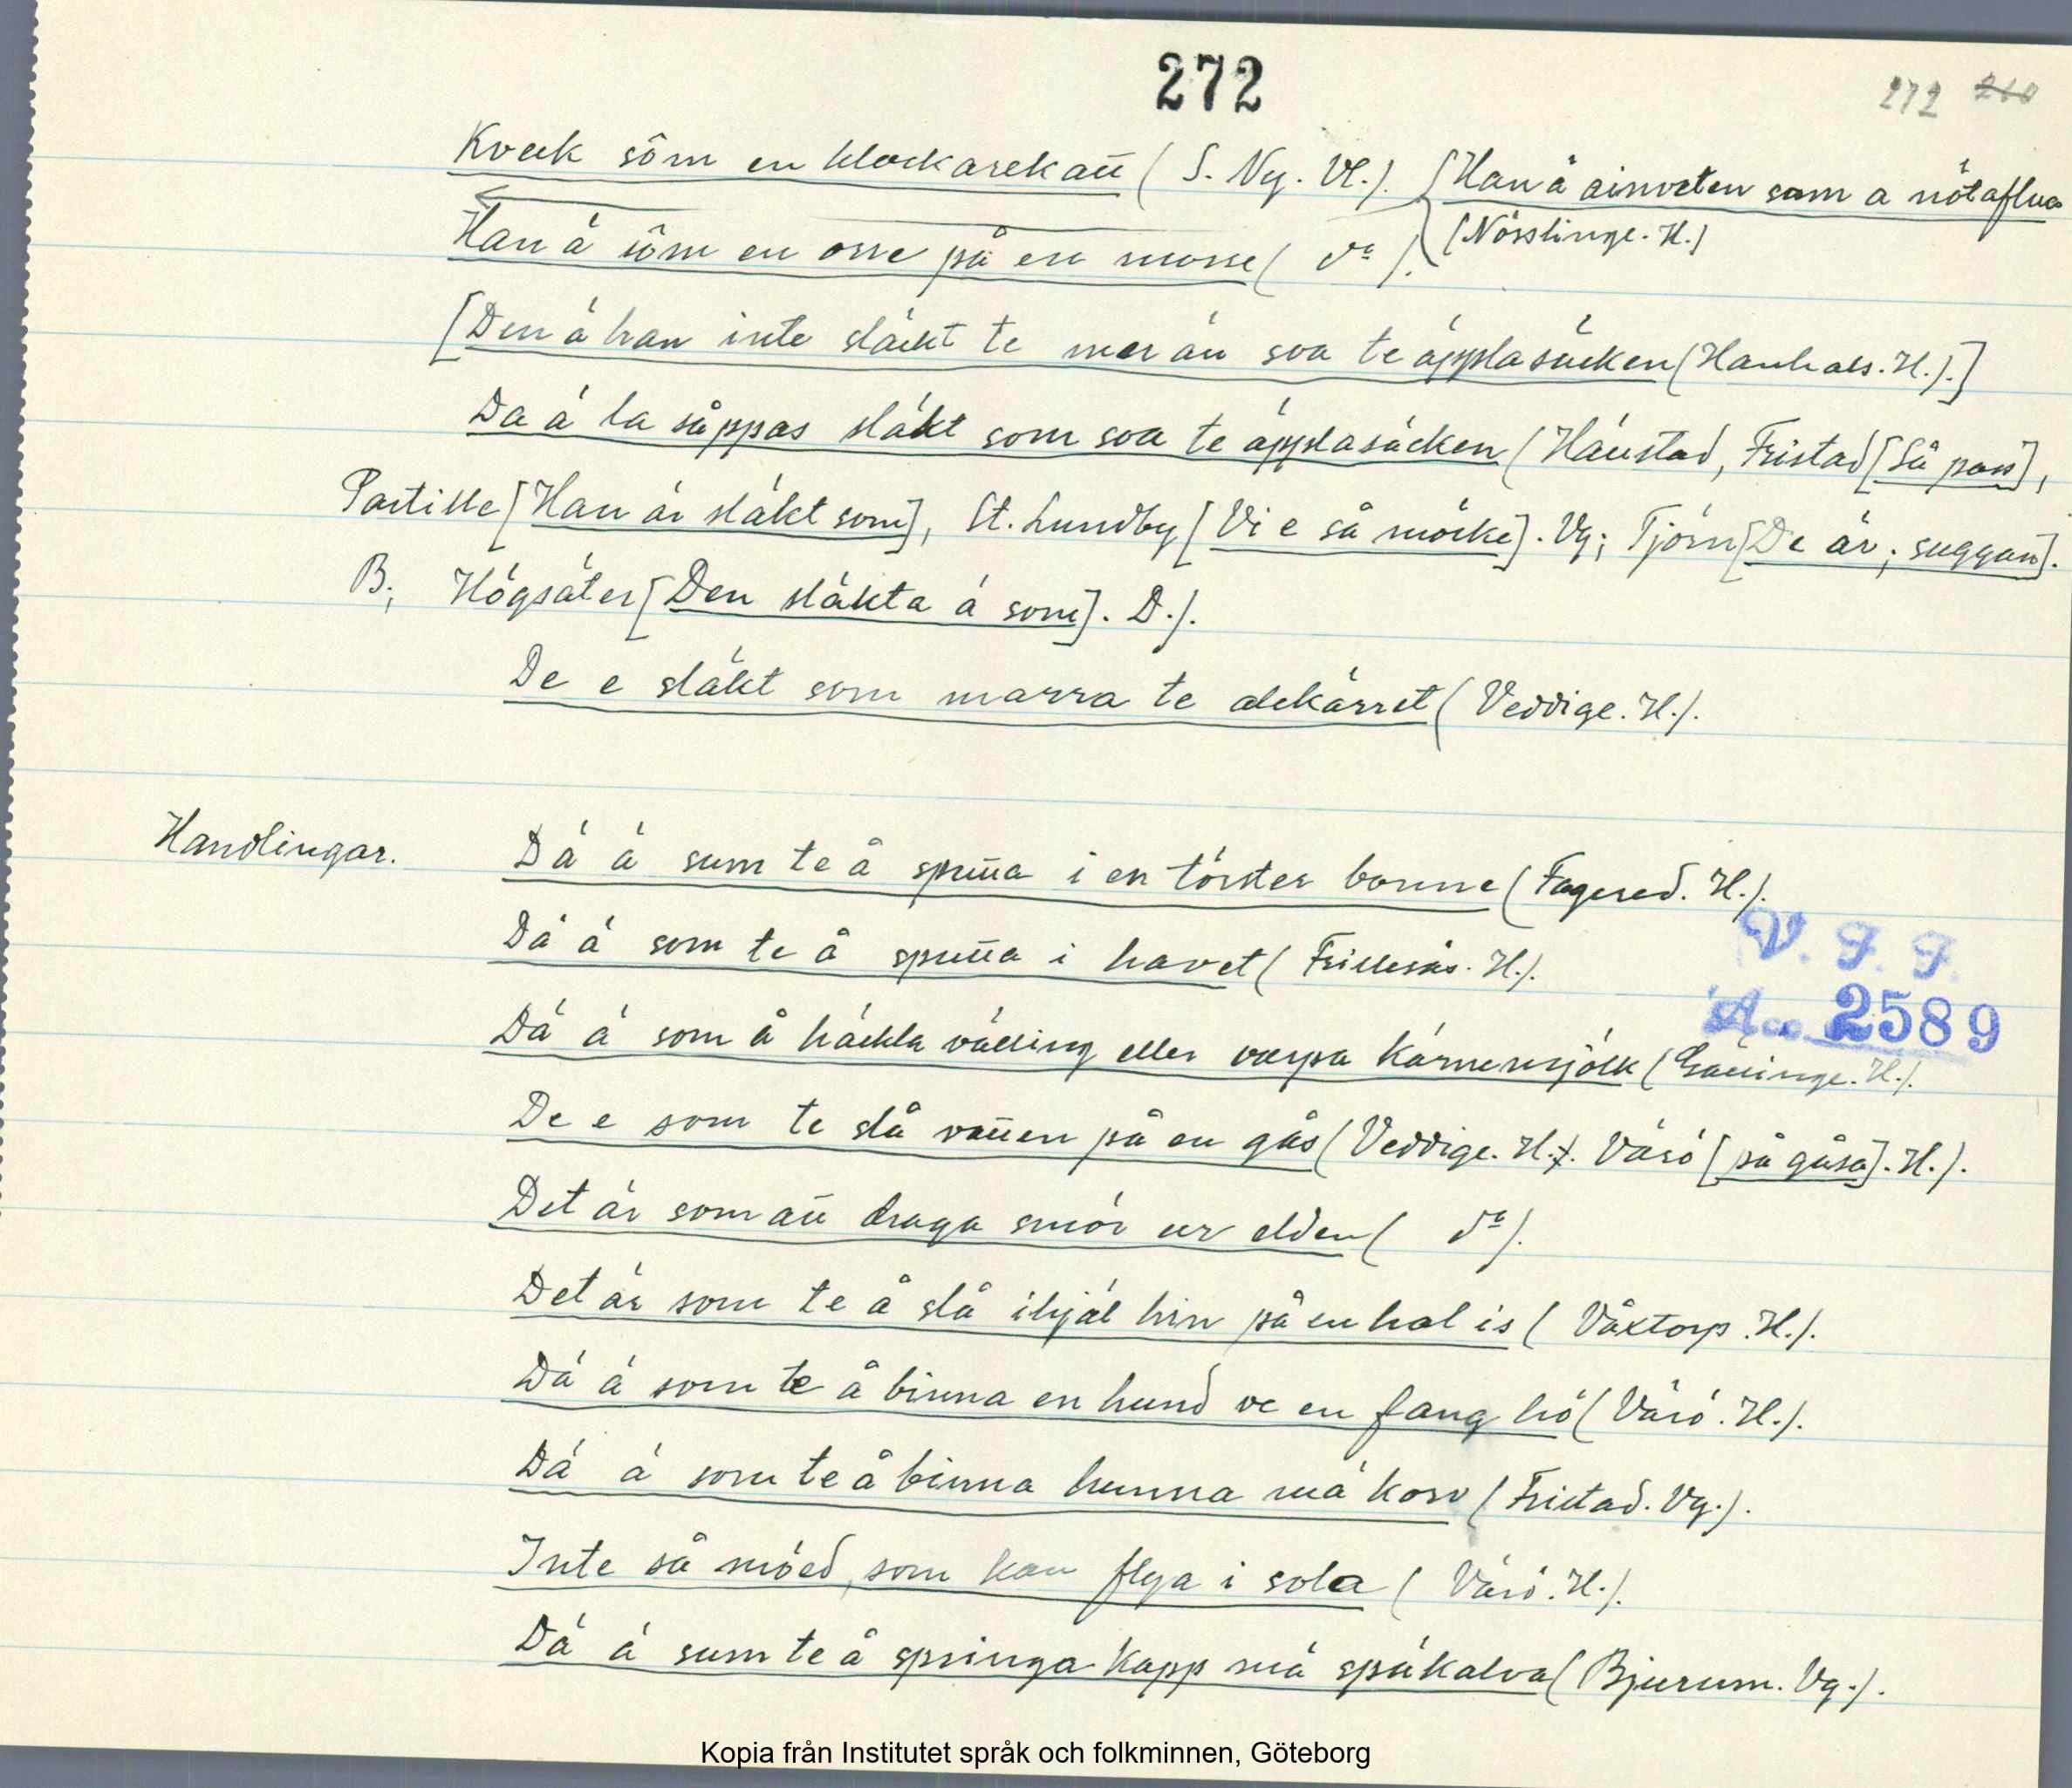 272
272 260
Kvek sôm en klockarekatt (S. Ny. Vl.). [Han ä ainveten sam a nötaflua
(Nösslinge. H.]
Han ä sôm en orre på en mosse ( dº ).
[Den ä han inte släkt te mer än soa te äpplasäcken (Hanhals. H.).]
Da ä la såppas släkt som soa te äpplasäcken (Hällstad, Fristad [så pass],
Partille [Han är släkt som], St. Lundby [Vi e så möcke]. Vg; Tjörn [De är; suggan].
B; Högsäter [Den släkta ä som]. D.).
De e släkt som marra te alekärret (Veddige. H.).
Handlingar.
Dä ä sum te å spütta i en törster bonne (Fagered. H.).
Dä ä som te å spütta i havet (Frillesås. H.).
V. F. F.
Dä ä som å häckla välling eller varpa kärnemjölk (Gällinge. H.).
Acc. 2589
De e som te slå vatten på en gås (Veddige. H.). Värö [på gåsa]. H.).
Det är som att draga smör ur elden ( dº ).
Det är som te å slå ihjäl hin på en hal is (Våxtorp. H.).
Dä ä som te å binna en hund ve en fang hö (Värö. H.).
Dä ä som te å binna hunna mä korv (Fristad. Vg.).
Inte så möed, som kan flya i sola (Värö. H.).
Dä ä sum te å springa kapp mä späkalva (Bjurum. Vg.).
Kopia från Institutet språk och folkminnen, Göteborg